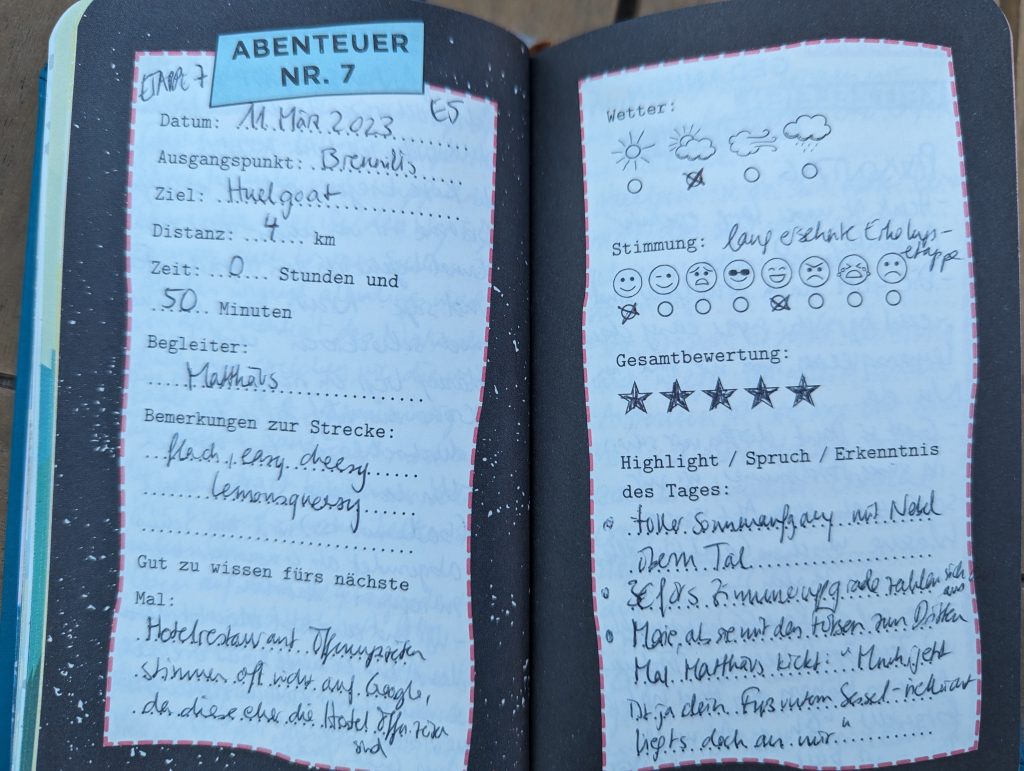 ABENTEUER
NR. 7
ETAPPE 7
E5
Datum: 11. MÄR 2023
Ausgangspunkt: Brennilis
Ziel: Huelgoat
Distanz: 4 km
Zeit: 0 Stunden und
50 Minuten
Begleiter:
Matthäus
Bemerkungen zur Strecke:
flach, easy cheesy
lemonsqueezy
Gut zu wissen fürs nächste
Mal:
Hotelrestaurant Öffnungszeiten
stimmen oft nicht auf Google,
da diese eher die Hotel Öffnungszeiten
sind
Wetter:
Stimmung: lang ersehnte Erholungs-
etappe
Gesamtbewertung:
Highlight / Spruch / Erkenntnis
des Tages:
toller Sonnenaufgang mit Nebel
überm Tal
3€ fürs Zimmerupgrade zahlen sich aus
Marie, als sie mit den Füßen zum Dritten
Mal Matthäus kickt: "
ja dein Fuss
liegts doch an mir"